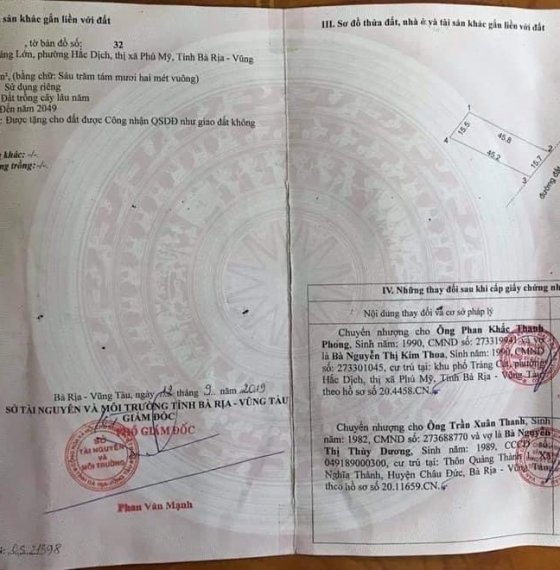 sản khác gắn liền với đất
, tờ bản đồ số: 32
Lớn, phường Hắc Dịch, thị xã Phú Mỹ, Tỉnh Bà Rịa - Vũng
m², (bằng chữ: Sáu trăm tám mươi hai mét vuông)
Sử dụng riêng
Đất trồng cây lâu năm
Đến năm 2049
: Được tặng cho đất được Công nhận QSDĐ như giao đất không
khác: -/-
trồng: -/-
Bà Rịa - Vũng Tàu, ngày 12 tháng 9 năm 2019
SỞ TÀI NGUYÊN VÀ MÔI TRƯỜNG TỈNH BÀ RỊA - VŨNG TÀU
GIÁM ĐỐC
PHÓ GIÁM ĐỐC
SỞ
TÀI NGUYÊN
VÀ
MÔI TRƯỜNG
Phan Văn Mạnh
CS 21598
III. Sơ đồ thửa đất, nhà ở và tài sản khác gắn liền với đất
1
15.5
45.8
2
4
45.2
15.7
3
đường đất
IV. Những thay đổi sau khi cấp giấy chứng
Nội dung thay đổi và cơ sở pháp lý
Chuyển nhượng cho Ông Phan Khắc Thanh
Phong, Sinh năm: 1990, CMND số: 273319941 và vợ
là Bà Nguyễn Thị Kim Thoa, Sinh năm: 1990, CMND
số: 273301045, cư trú tại: khu phố Trảng Cát, phường
Hắc Dịch, thị xã Phú Mỹ, Tỉnh Bà Rịa - Vũng Tàu
theo hồ sơ số 20.4458.CN.
Chuyển nhượng cho Ông Trần Xuân Thanh, Sinh
năm: 1982, CMND số: 273688770 và vợ là Bà Nguyễn
Thị Thùy Dương, Sinh năm: 1989, CCCD số
049189000300, cư trú tại: Thôn Quảng Thành 1, Xã
Nghĩa Thành, Huyện Châu Đức, Bà Rịa - Vũng Tàu
theo hồ sơ số 20.11659.CN.